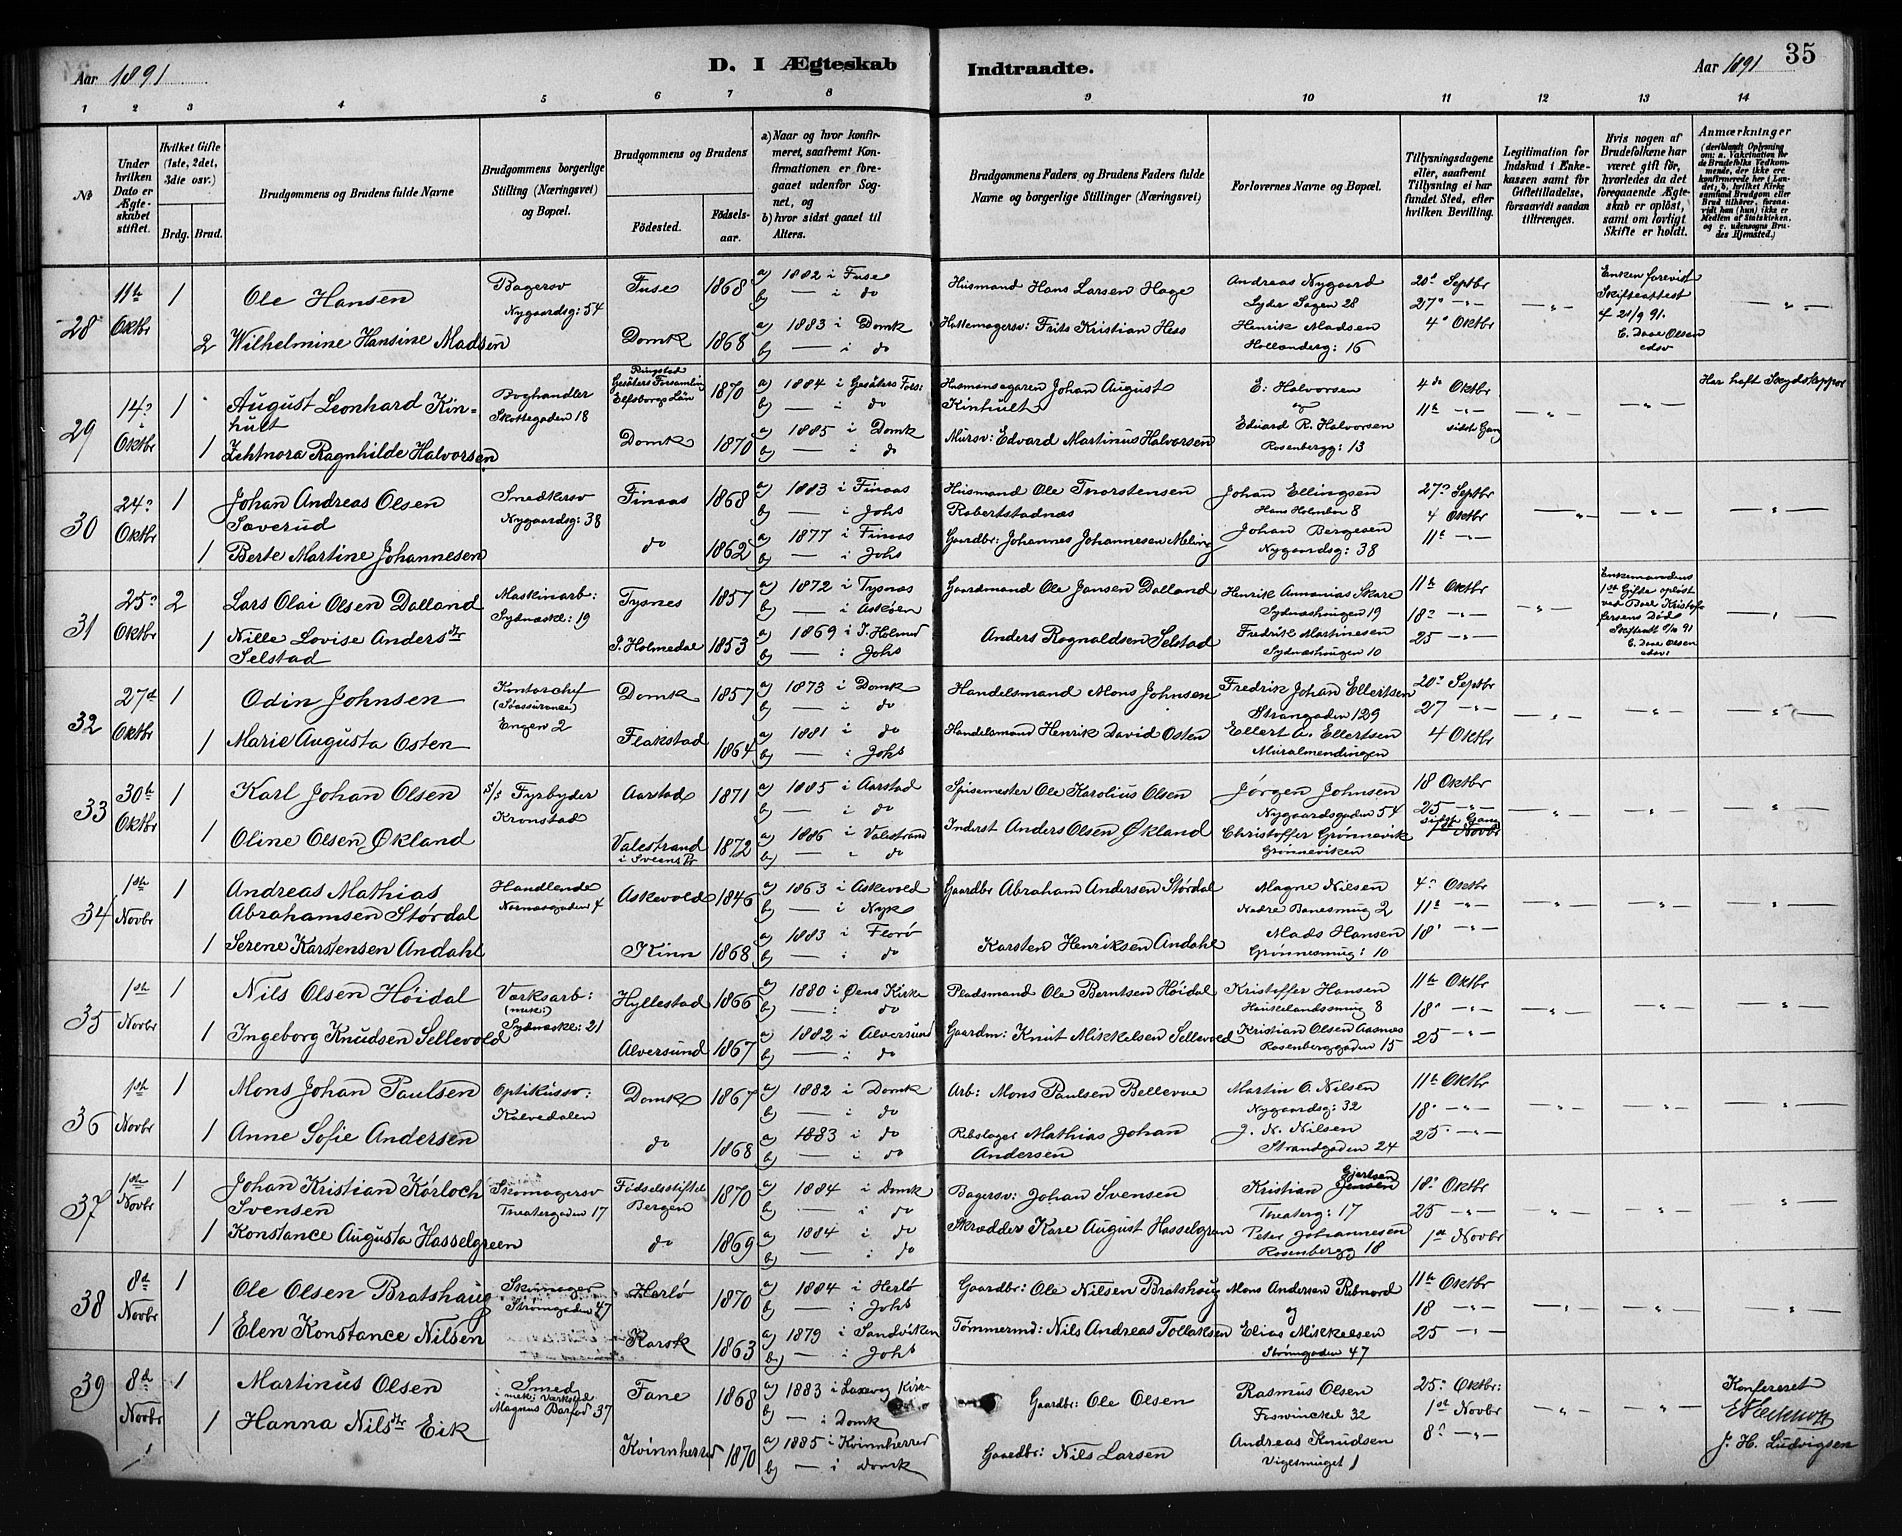 Aar 1891
D. I Ægteskab
Indtraadte.
Aar 1891
35
1 2 3 4 5 6 7 8 9 10 11 12 13 14
No
Under hvilken Dato er Ægteskabet stiftet.
Hvilket Gifte (1ste, 2det, 3die osv.)
Brdg. Brud.
Brudgommens og Brudens fulde Navne
Brudgommens borgerlige Stilling (Næringsvei) og Bopæl.
Brudgommens og Brudens
Fødested.
Fødselsaar.
a) Naar og hvor konfirmeret, saafremt Konfirmationen er foregaaet udenfor Sognet, og
b) hvor sidst gaaet til Alters.
Brudgommens Faders og Brudens Faders fulde Navne og borgerlige Stillinger (Næringsvei)
Forlovernes Navne og Bopæl.
Tillysningsdagene eller, saafremt Tillysning ei har fundet Sted, efter hvilken Bevilling.
Legitimation for Indskud i Enkekassen samt for Giftetilladelse, forsaavidt saadan tiltrænges.
Hvis nogen af Brudefolkene har været gift før, hvorledes da det foregaaende Ægteskab er opløst, samt om lovligt Skifte er holdt.
Anmærkninger
(deriblandt Oplysning om: a. Vakcination for de Brudefolks Vedkommende, der ikke ere konfirmerede her i Landet; b. hvilket Kirkesamfund Brudgom eller Brud tilhører, forsaavidt han (hun) ikke er Medlem af Statskirken, og c. udensogns Brudes Hjemsted.)
28 11te Oktbr 1 Ole Hansen Bagersv Nygaardsg: 54 Fuse 1868 a) 1882 i Fuse b) — i do Husmand Hans Larsen Hage Andreas Nygaard Lyder Sagen 28 20de Septbr 27de —"— 4de Oktbr —"— Enken forevist Skifteattest af 21/9 91. E. Daae Olsen edsv —"—
2 Wilhelmine Hansine Madsen Domk 1868 a) 1883 i Domk b) — i do Hattemagersv: Frits Kristian Hess Henrik Madsen Hollenderg: 16
29 14de Oktbr 1 August Leonhard Kinhult Boghandler Skottegaden 18 Ringstad Gesäters Forsamling Elfsborgs Län 1870 a) 1884 i Gesäters Fors: b) — i do Husmansegaren Johan August Kinhult E. Halvorsen og 4de Oktbr 11te —"— sidst Gang —"— —"— Har haft Skydskopper
1 Zehtnora Ragnhilde Halvorsen Domk 1870 a) 1885 i Domk b) — i do Mursv: Edvard Martinus Halvorsen Edvard R. Halvorsen Rosenbergg: 13
30 24de Oktbr 1 Johan Andreas Olsen Saverud Smedkersv Nygaardsg: 38 Finaas 1868 a) 1883 i Finaas b) — i Johs Husmand Ole Thorstensen Robertstadnæs Johan Ellingsen Hans Holmboe 8 27de Septbr 4 Oktbr 11te —"— —"— —"— —"—
1 Berte Martine Johannesen do 1862 a) 1877 i Finaas b) — i Johs Gaardbr: Johannes Johannesen Meling Johan Bergesen Nygaardsg: 38
31 25de Oktbr 2 Lars Olai Olsen Dalland Maskinarb: Sydnæskl: 19 Tysnes 1857 a) 1872 i Tysnæs b) — i Askøen Gaardmand Ole Jansen Dalland Henrik Annanias Skare Sydnæshougen 19 11te Oktbr 18de —"— 25 —"— —"— Enkemandens 1ste Gifte opløst ved Boel Kristoffersens Død E. Daae Olsen edsv: —"—
1 Nille Lovise Andersdtr Selstad I. Holmedal 1853 a) 1869 i I. Holmed b) — i Johs Anders Rognaldsen Selstad Fredrik Martinesen Sydnæshougen 10
32 27de Oktbr 1 Odin Johnsen Kontorchef (Søassurance) Engen 2 Domk 1857 a) 1873 i Domk b) — i do Handelsmand Mons Johnsen Fredrik Johan Ellertsen Strangaden 129 20de Septbr 27 —"— 4 Oktbr —"— —"— —"—
1 Marie Augusta Osten Flakstad 1864 a) 1881 i do b) — i Johs Handelsmand Henrik David Osten Ellert A. Ellertsen Muralmendingen
33 30te Oktbr 1 Karl Johan Olsen s/s Fyrbyder Kronstad Aarstad 1871 a) 1885 i Aarstad b) — i do Spisemester Ole Karolius Olsen Jørgen Johnsen Nygaardsgaden 54 18 Oktbr 25 —"— sidst Gang 1st Novbr —"— —"— —"—
1 Oline Olsen Økland Valestrand i Sveens Pr 1872 a) 1886 i Valestrand b) — " do Inderst Anders Olsen Økland Christoffer Grønnevik Grønneviken
34 1ste Novbr 1 Andreas Mathias Abrahamsen Størdal Handlende Nornæsgaden 4 Askevold 1846 a) 1863 i Askevold b) — i Nyk Gaardbr Abraham Andersen Størdal Magne Nilsen Nedre Banesmug 2 4de Oktbr 11te —"— 18de —"— —"— —"— —"—
1 Serene Karstensen Andahl Kinn 1868 a) 1883 i Florø b) — i do Karsten Henriksen Andahl Mads Hansen Grønnesmug: 10
35 1ste Novbr 1 Nils Olsen Høidal Værksarb: (mek:) Sydnæskl: 21 Hyllestad 1866 a) 1880 i Øens Kirke b) — i do Pladsmand Ole Berntsen Høidal Kristoffer Hansen Haukelandssmug 8 11te Oktbr 18de —"— 25 —"— —"— —"— —"—
1 Ingeborg Knudsen Sellevold Alversund 1867 a) 1882 i Alversund b) — i do Gaardm: Knut Mikkelsen Sellevold Kristian Olsen Aasnæs Rosenberggaden 15
36 1ste Novbr 1 Mons Johan Paulsen Optikussv: Kalvedalen Domk 1867 a) 1882 i Domk b) — i do Arb: Mons Paulsen Bellevue Martin O. Nilsen Nygaardsg: 32 11te Oktbr 18de —"— 25de —"— —"— —"— —"—
1 Anne Sofie Andersen do 1868 a) 1883 i do b) — i do Rebslager Mathias Johan Andersen J. N. Nilsen Strandgaden 24
37 1ste Novbr 1 Johan Kristian Kørloch Svensen Skomagersv Theatergaden 17 Fødselsstiftel Bergen 1870 a) 1884 i Domk b) — i do Bagersv: Johan Svensen Kristian Gjertsen Jensen Theaterg: 17 18de Oktbr 25 —"— 1ste Novbr —"— —"— —"—
1 Konstance Augusta Hasselgreen do 1869 a) 1884 i do b) — i do Skrædder Kare August Hasselgreen Peter Johannesen Rosenbergg 18
38 8de Novbr 1 Ole Olsen Bratshaug Skomager Strømgaden 47 Herlø 1870 a) 1884 i Herlø b) — i Johs Gaardbr: Ole Nilsen Bratshoug Mons Andersen Rebnord og 11te Oktbr 18 —"— 25 —"— —"— —"— —"—
1 Elen Konstance Nilsen Karsk 1863 a) 1879 i Sandviken b) — i Johs Tømmermd: Nils Andreas Tollaksen Elias Mikkelsen Strømgaden 47
39 8de Novbr 1 Martinus Olsen Smed i mek: Værksted Magnus Barfod 37 Fane 1868 a) 1883 i Laxevg Kirke b) — i Domk Gaardbr: Ole Olsen Rasmus Olsen Foswinckel 32 25de Oktbr: 1ste Novbr 8de —"— —"— —"— Konfereret
1 Hanna Nilsdtr Eik Kvinnherred 1870 a) 1885 i Kvinnherred b) — i Domk Gaardbr: Nils Larsen Andreas Knudsen Vigesmuget 1 J. H. Ludvigsen